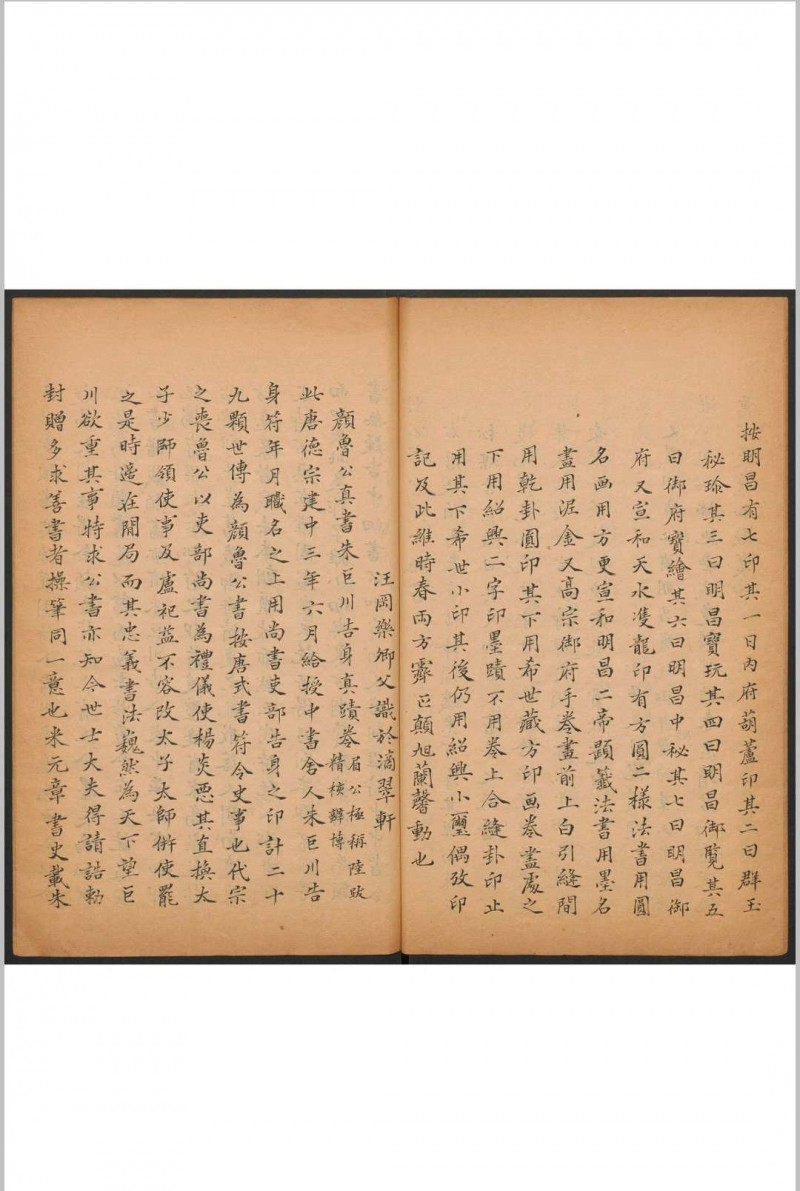 按明昌有七印其一曰內府葫蘆印其二曰群玉
秘珍其三曰明昌寶玩其四曰明昌御覽其五
曰御府寶繪其六曰明昌中秘其七曰明昌御
府又宣和天水䨇龍印有方圓二樣法書用圓
名画用方更宣和明昌二帝題籤法書用墨名
畫用泥金又髙宗御府手卷畫前上白引縫間
用乾卦圓印其下用希世藏方印画卷盡處之
下用紹興二字印墨蹟不用卷上合縫卦印止
用其下希世小印其後仍用紹興小璽偶攷印
記及此維時春雨方霽巨顛旭蘭馨動也
汪岡樂卿父識於滴翠軒
顏魯公真書朱巨川告身真蹟卷 眉公極稱陸跋
精核辯博
此唐德宗建中三年六月給授中書舍人朱巨川告
身符年月職名之上用尚書吏部告身之印計二十
九顆世傳為顏魯公書按唐式書符令史事也代宗
之喪魯公以吏部尚書為禮儀使楊炎惡其直換太
子少師領使事及盧杞益不容改太子太師併使罷
之是時適在閒局而其忠義書法巍然為天下望巨
川欲重其事特求公書亦知今世士大夫得請誥勅
封贈多求善書者操筆同一意也米元章書史載朱